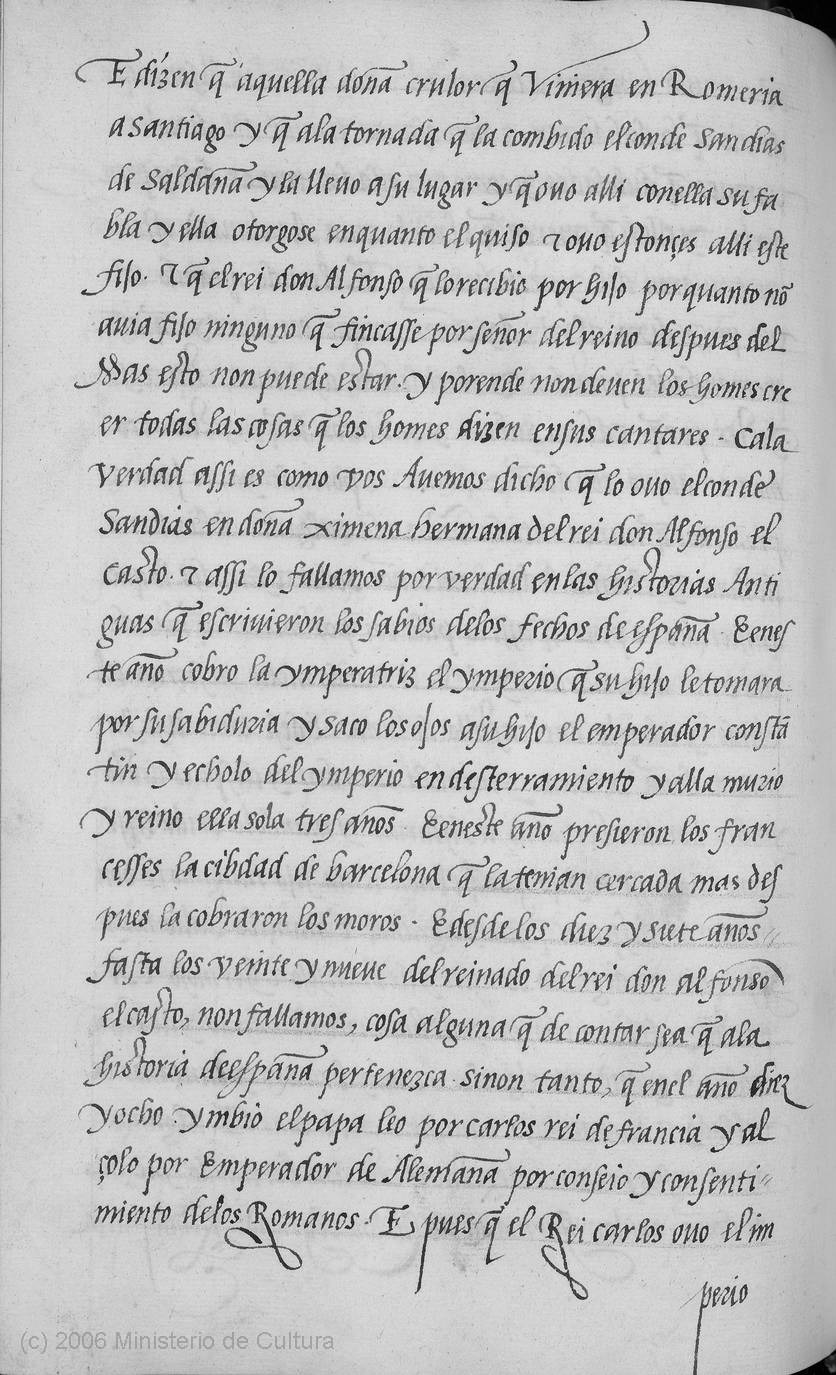 E dizen q̃ aquella doña crulor q̃ Viniera en Romeria
a Santiago y q̃ ala tornada q̃ la combido el conde San dias
de Saldaña y la lleuo a su lugar y q̃ ouo alli con ella su fa
bla y ella otorgose en quanto el quiso ⁊ ouo estonçes alli este
fijo. ⁊ q̃ el rei don Alfonso q̃ lo recibio por hijo por quanto nõ
auia fijo ninguno q̃ fincasse por señor del reino despues del
Mas esto non puede estar. y porende non deuen los homes cre
er todas las cosas q̃ los homes dizen en sus cantares. Ca la
verdad assi es como vos Auemos dicho q̃ lo ouo el conde
Sandias en doña ximena hermana del rei don Alfonso el
Casto. ⁊ assi lo fallamos por verdad en las historias Anti
guas q̃ escriuieron los sabios delos fechos de españa. E enes
te año cobro la ymperatriz el ymperio q̃ su hijo le tomara
por su sabiduria y saco los ojos a su hijo el emperador constã
tin y echolo del ymperio en desterramiento y alla murio
y reino ella sola tres años. E eneste año presieron los fran
cesses la cibdad de barcelona q̃ la tenian cercada mas des
pues la cobraron los moros. E desde los diez y siete años
fasta los veinte y nueue del reinado del rei don alfonso
el casto, non fallamos, cosa alguna q̃ de contar sea q̃ ala
historia de españa pertenezca. sinon tanto, q̃ enel año diez
y ocho ymbio el papa leo por carlos rei de francia y al
çolo por Emperador de Alemaña por conseio y consenti-
miento delos Romanos. E pues q̃ el Rei carlos ouo el im
perio
(c) 2006 Ministerio de Cultura